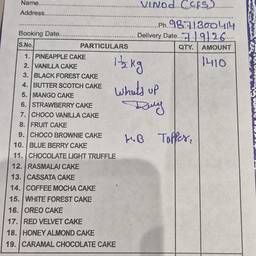 Name Vinod (CFS)
Address
Ph. 9871300414
Booking Date Delivery Date 7/9/26
S.No. PARTICULARS QTY. AMOUNT
1. PINEAPPLE CAKE 1½ kg 1410
2. VANILLA CAKE
3. BLACK FOREST CAKE
4. BUTTER SCOTCH CAKE
5. MANGO CAKE Whats up
6. STRAWBERRY CAKE
7. CHOCO VANILLA CAKE
8. FRUIT CAKE
9. CHOCO BROWNIE CAKE H.B Topper.
10. BLUE BERRY CAKE
11. CHOCOLATE LIGHT TRUFFLE
12. RASMALAI CAKE
13. CASSATA CAKE
14. COFFEE MOCHA CAKE
15. WHITE FOREST CAKE
16. OREO CAKE
17. RED VELVET CAKE
18. HONEY ALMOND CAKE
19. CARAMAL CHOCOLATE CAKE